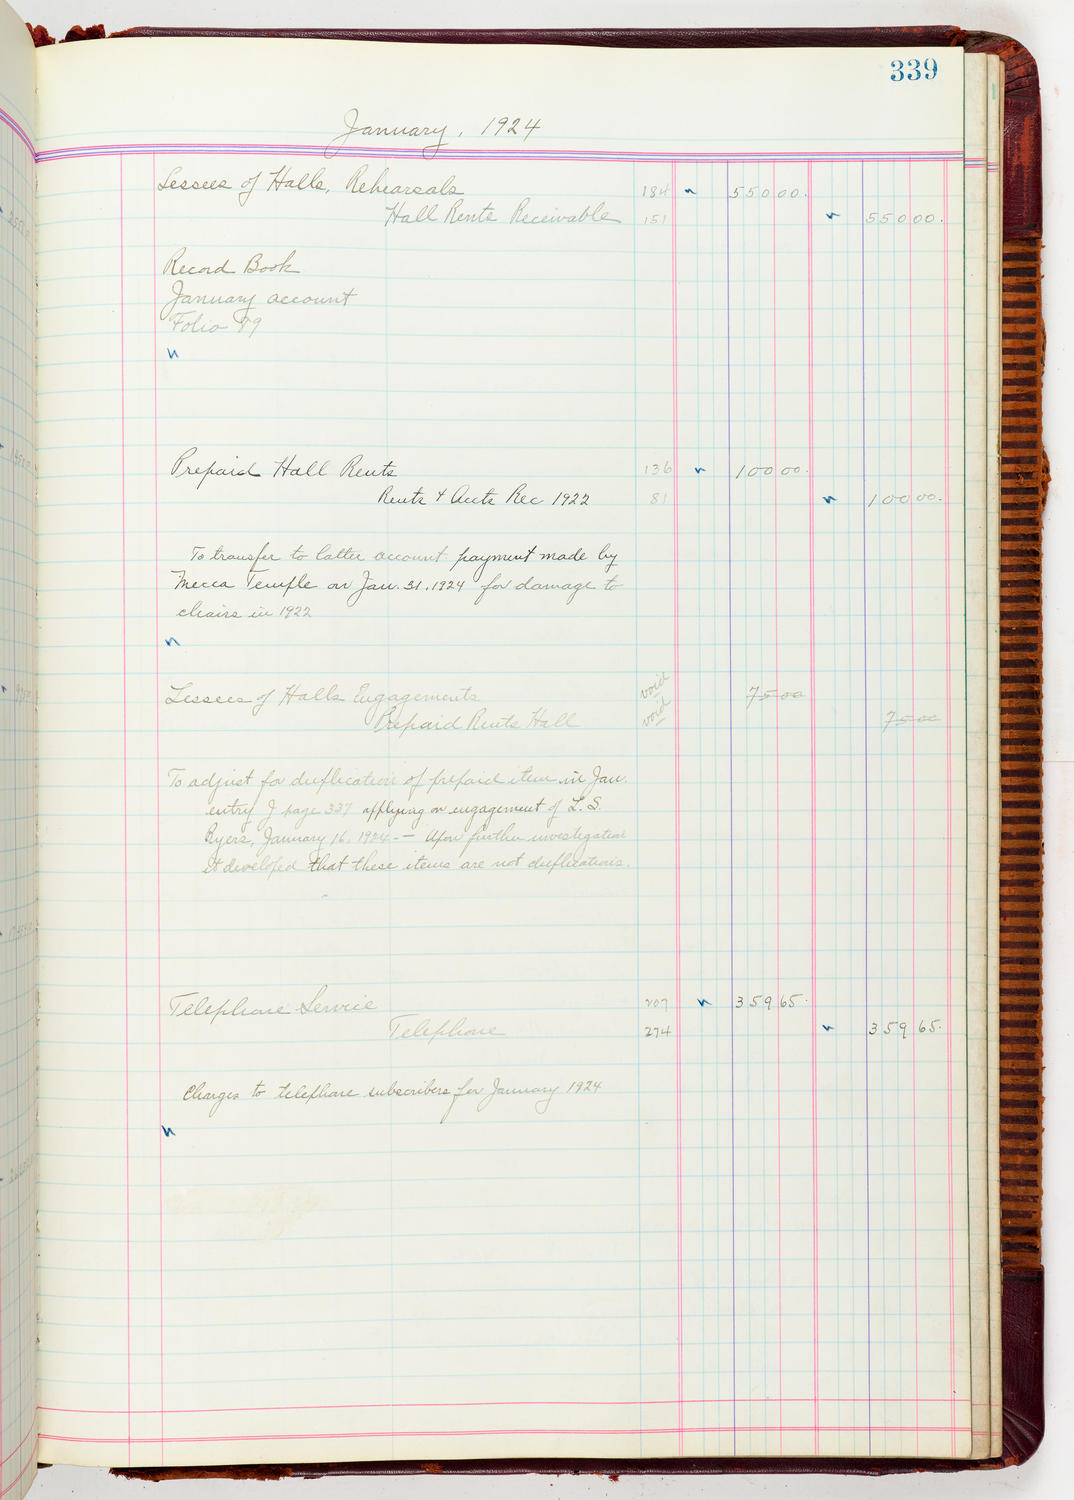 339
January, 1924
Lessees of Halls, Rehearsals 184 550 00.
Hall Rents Receivable 151 550 00.
Record Book
January account
Folio 89
Prepaid Hall Rents 136 100 00.
Rents & Accts Rec 1922 81 100 00.
To transfer to latter account payment made by
Mecca Temple on Jan. 31, 1924 for damage to
chairs in 1922
Lessees of Halls Engagements void 75 00
Prepaid Rents Hall void 75 00
To adjust for duplication of prepaid item in Jan.
entry J page 337 applying on engagement of L. S.
Byers, January 16, 1924 - — Upon further investigation
it developed that these items are not duplications.
Telephone Service 207 359 65.
Telephone 274 359 65.
Charges to telephone subscribers for January 1924